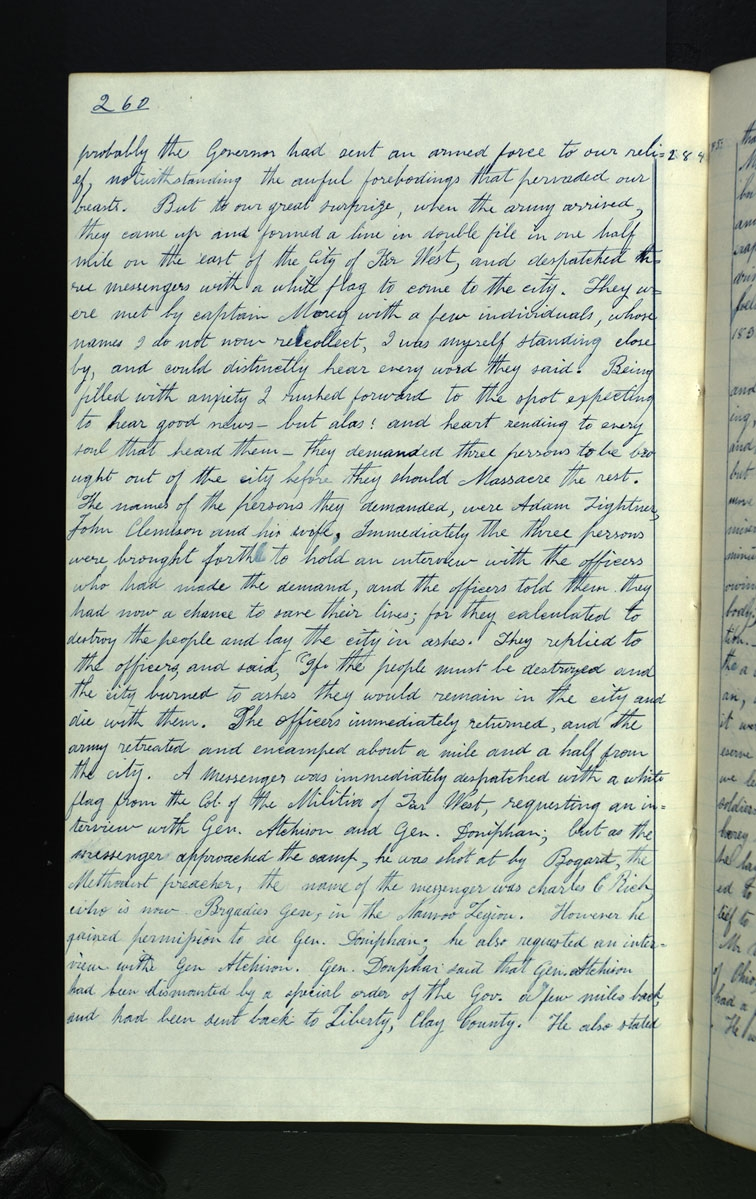 260
probably the Governor had sent an armed force to our reli= 284
ef, notwithstanding the awful forebodings that pervaded our
breast. But to our great surprize, when the army arrived,
they came up and formed a line in double file in one half
mile on the east of the City of Far West, and despatched th=
ree messengers with a white flag to come to the city. They w=
ere met by captain Morey with a few individuals, whose
names I do not now recollect, I was myself standing close
by, and could distinctly hear every word they said. Being
filled with anxiety I rushed forward to the spot expecting
to hear good news — but alas! and heart rending to every
soul that heard them — they demanded three persons to be bro
ught out of the city before they should Massacre the rest.
The names of the persons they demanded, were Adam Lightner,
John Clemison and his wife, Immediately the three persons
were brought forth to hold an interview with the officers
who had made the demand, and the officers told them they
had now a chance to save their lives; for they calculated to
destroy the people and lay the city in ashes. They replied to
the officers, and said, "If the people must be destroyed and
the city burned to ashes they would remain in the city and
die with them. The officers immediately returned, and the
army retreated and encamped about a mile and a half from
the city. A messenger was immediately despatched with a white
flag from the Col. of the Militia of Far West, requesting an in=
terview with Gen. Atchison and Gen. Doniphan; but as the
messenger approached the camp, he was shot at by Bogard, the
Methodist preacher, the name of the messenger was charles C Rich,
who is now Brgadier Gen, in the Nauvoo Legion. However he
gained permission to see Gen. Doniphan; he also requested an inter=
view with Gen Atchison. Gen. Doniphan said that Gen. Atchison
had been dismounted by a special order of the Gov. a few miles back
and had been sent back to Liberty, Clay County. He also stated